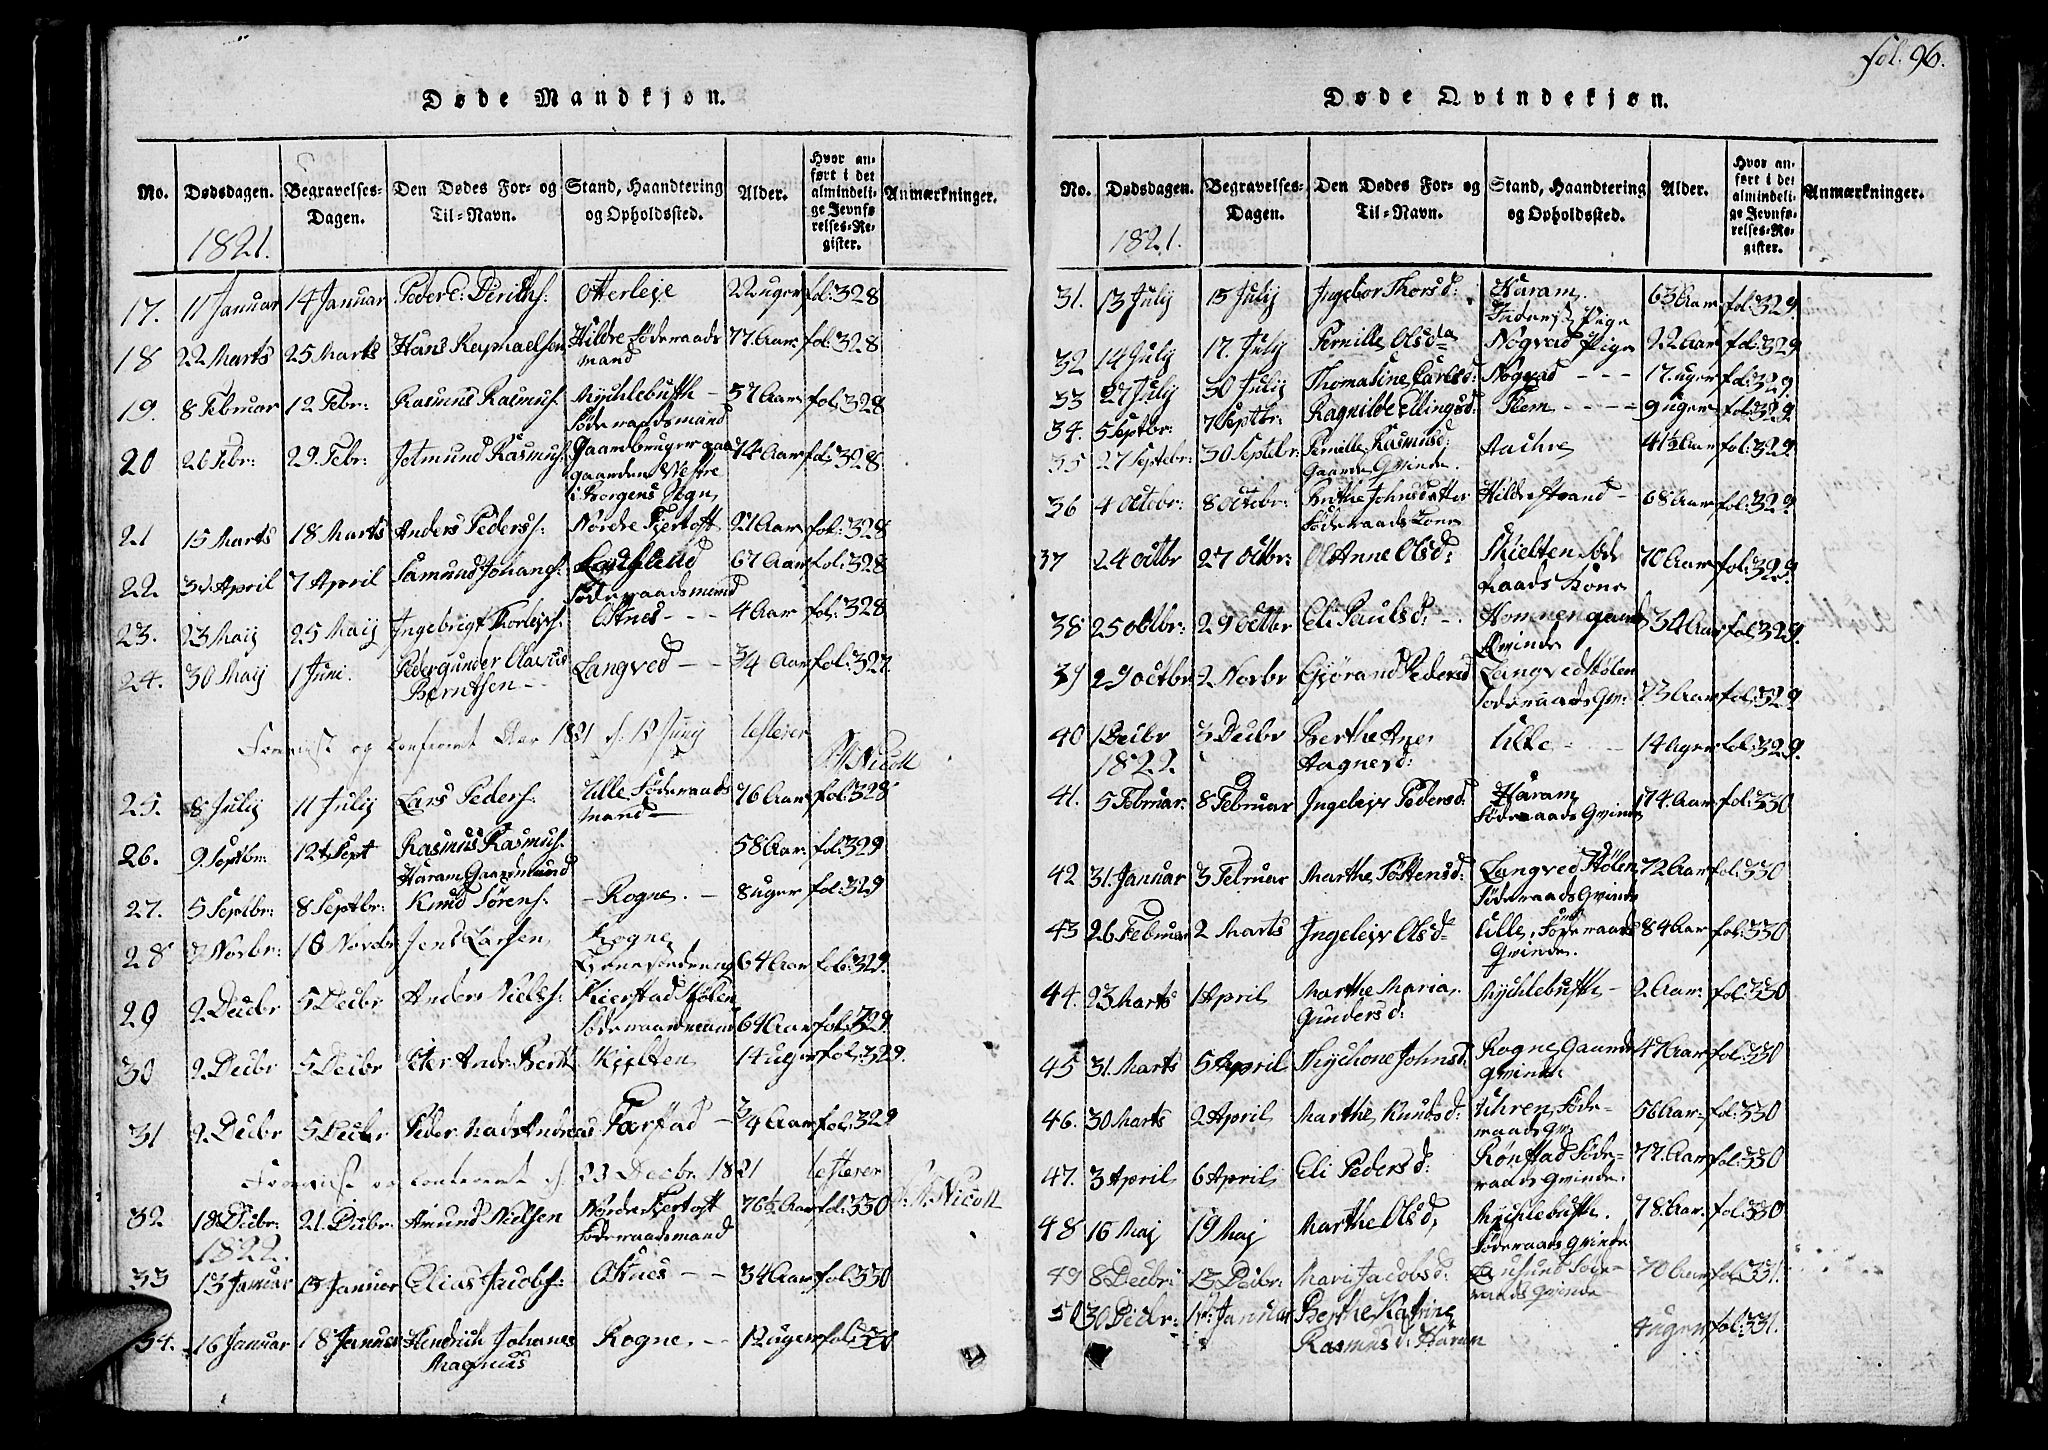 fol. 96.
Døde Mandkjøn.
No. Dødsdagen. Begravelses-Dagen. Den Dødes For- og Til-Navn. Stand, Haandtering og Opholdssted. Alder. Hvor anført i det almindelige Jevnførelses-Register. Anmærkninger.
1821.
17. 11 Januar 14 Januar Peder Otterleje 22 uger fol: 328
18 22 Marts 25 Marts Hans Raphaelsen Hildre Føderaads mand 77 Aar fol: 328
19. 8 Februar 12 Febr: Rasmus Rasmus: Mychlebusth Føderaadsmand 57 Aar fol: 328
20 26 Febr: 29 Febr: Jetmund Rasmus: Gaardbruger paa gaarden Westre i Borgens Sogn 74 Aar fol: 328
21 15 Marts 18 Marts Anders Peders: Nordre Fjertoft 21 Aar fol: 328
22. April 7 April Samund Johans: Føderaadsmand 67 Aar fol: 328
23. 23 Maij 25 Maij Ingebrigt Thorleifs: Østnes - - - 4 Aar fol: 328
24. 30 Maij 1 Juni. Pedergunder Olavus Berntsen - - Langved - - 3/4 Aar fol: 327.
og conferert 1821 d. Juny testerer
Nicoll
25. 8 Julij 11 Julij Lars Peders: Ulle Føderaads mand 76 Aar fol: 328
26. 9 Septbr: 12 Sept Rasmus Rasmus: Haram Gaardmand 58 Aar fol: 329
27. 5 Septbr: 8 Septbr: Knud Sørens: - Rogne. - 8 uger fol: 329
28 Novbr: 18 Novbr Jens Larsen Rogne 64 Aar fol: 329.
29 2 Decbr 5 Decbr Anders Niels: Kierstad Hølen Føderaadsmand 64 Aar fol: 329
30 2 Decbr 5 Decbr Peter Andr: Bert: Skjelten 14 uger fol: 329.
31 2 Decbr 5 Decbr Peder Mads Andreas Farstad - 3/4 Aar fol: 329
og confereret d. 23 Decbr 1821 testerer
Nicoll
32 18 Decbr: 21 Decbr: Amund Nielsen Nordre Fjertoft Føderaadsmand 76 1/2 Aar fol: 330
1822.
33 13 Januar 15 Januar Elias Jacobs: Østnes - - 34 Aar fol: 330
34. 16 Januar 18 Januar Hendrich Johanes Magnus Rogne. - - 12 uger fol: 330
Døde Qvindekjøn.
No. Dødsdagen. Begravelses-Dagen. Den Dødes For- og Til-Navn. Stand, Haandtering og Opholdssted. Alder. Hvor anført i det almindelige Jevnførelses-Register. Anmærkninger.
1821.
31. 13 Julij 15 Julij Ingebor Thorsd: Haram Pige 63 Aar fol: 329.
32 14 Julij 17. Julij Pernille Olsda Nogvad Pige 22 Aar fol: 329
33 27 Julij 30 Julij Thomasine Carlsd: Nogvad - - - 17. uger fol: 329.
34. 5 Septbr: 7 Septbr: Ragnilde Ellingsd: Flem - - - - 9 uger fol: 329
35 27 Septebr: 30 Septebr: Pernille Rasmusd: Gaards Qvinde. Aachre 41 1/2 Aar fol: 329.
36 4 Octobr: 8 Octobr: Brithe Johnsdatter Føderaads Kone Hildrestrand - 68 Aar fol: 329.
37 24 Octbr 27 Octbr: Anne Olsd: Skielten Føderaads Kone 70 Aar fol: 329.
38 25 Octbr: 29 Octbr Eli Paulsd: - Qvinde 34 Aar fol: 329.
39 29 Octbr 2 Novbr Gjørand Pedersd Langved Hølen Føderaads Qv: 73 Aar fol: 329
40 1 Decbr 3 Decbr Berthe Ane Aagnesd: Ulle - - - 14 uger fol: 329.
1822.
41. 5 Februar: 8 Februar Ingeleje Pedersd: Haram Føderaads Qvinde 74 Aar fol: 330
42 31. Januar 3 Februar Marthe Tostensd: Langved Hølen Føderaads Qvinde 72 Aar fol: 330
43 26 Februar 2 Marts Ingelejs Olsd: Ulle, Føderaads Qvinde. 84 Aar fol: 330
44. 23 Marts 1 April Marthe Maria Gundersd: Mychlebusth - 2 Aar: fol: 330
45 31. Marts 5 April Johnsd: Rogne Gaards Qvinde 47 Aar fol: 330
46. 30 Marts 2 April Marthe Knudsd: Uhren Føderaads Qv: 56 Aar: fol: 330
47. 3 April 6 April Eli Pedersd: Rønstad Føderaads Qvinde. 77. Aar fol: 330
48 16 Maj 19 Maj Marthe Olsd: Mychlebusth. Føderaads Qvinde 78. Aar. fol: 330
49 8 Decbr: 13 Decbr: Mari Jacobsd: Føderaads Qvinde 70 Aar fol: 331.
50 30 Decbr: Januar Berthe Katrine Rasmusd: Haram 4 uger fol: 331.